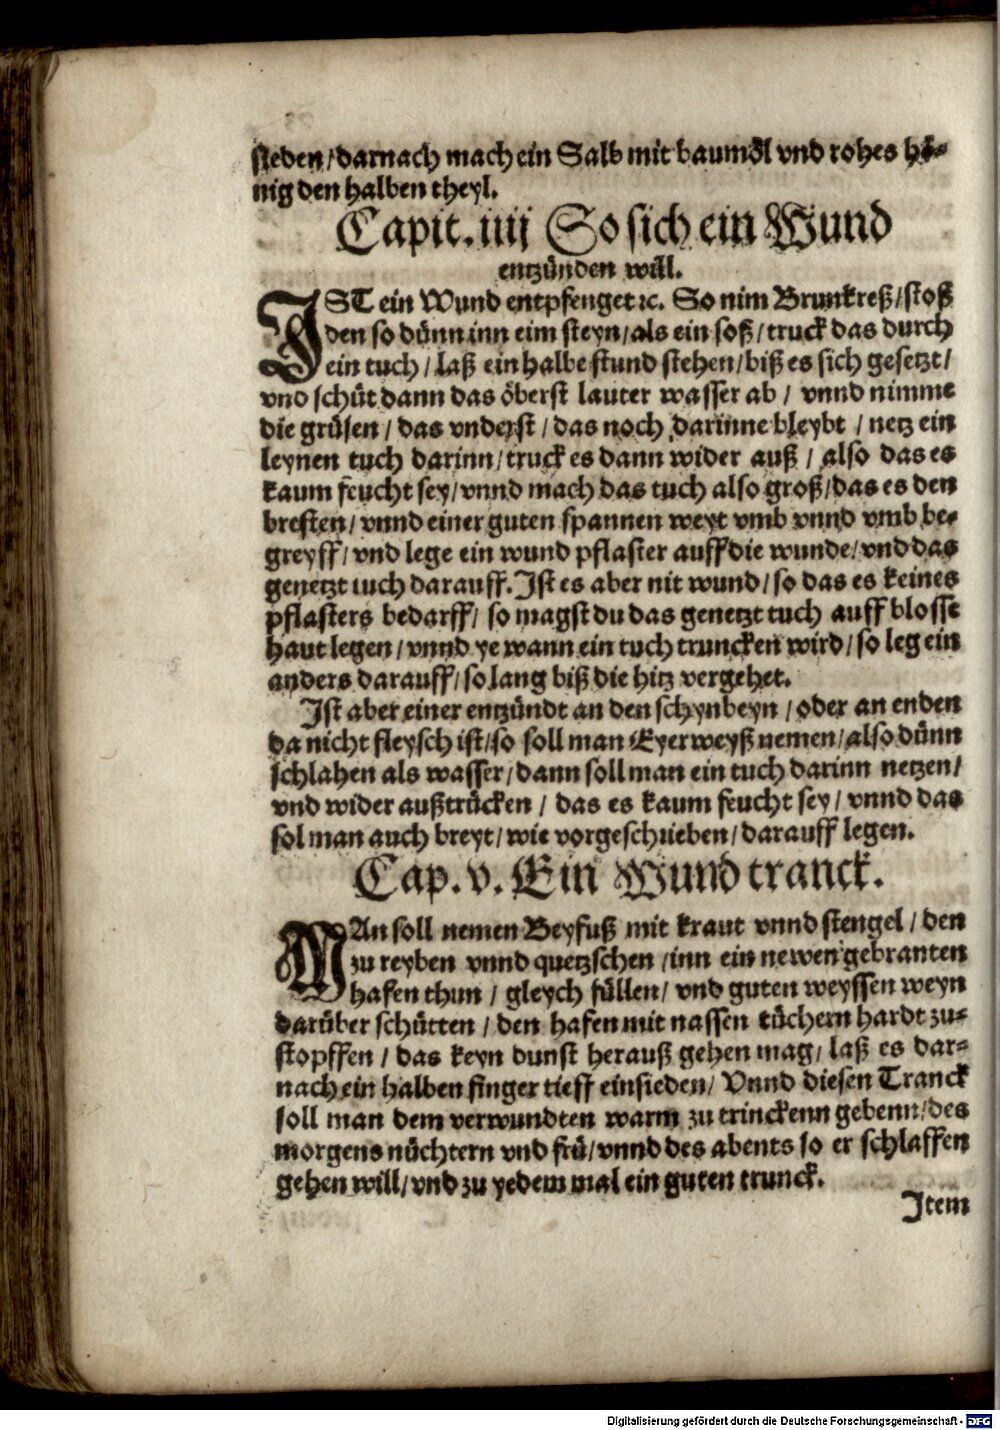 sieden/darnach mach ein Salb mit baumöl vnd rohes hö-
nig den halben theyl.
Capit. iiij So sich ein Wund
entzünden will.
IST ein Wund entpfenget ꝛc. So nim Brunkreß/stoß
den so dünn inn eim steyn/als ein soß/truck das durch
ein tuch/laß ein halbe stund stehen/biß es sich gesetzt/
vnd schüt dann das öberst lauter wasser ab/ vnnd nimme
die grüsen/das vnderst/das noch darinne bleybt/netz ein
leynen tuch darinn/truck es dann wider auß/also das es
kaum feucht sey/vnnd mach das tuch also groß/das es den
bresten/vnnd einer guten spannen weyt vmb vnnd vmb be-
greyff/vnd lege ein wund pflaster auff die wunde/vnd das
genetzt tuch darauff. Ist es aber nit wund/so das es keines
pflasters bedarff/ so magst du das genetzt tuch auff blosse
haut legen/vnnd ye wann ein tuch truncken wird/so leg ein
anders darauff/so lang biß die hitz vergehet.
Ist aber einer entzündt an den schynbeyn/oder an enden
da nicht fleysch ist/so soll man Eyerweyß nemen/also dünn
schlahen als wasser/dann soll man ein tuch darinn netzen/
vnd wider außtrücken/das es kaum feucht sey/vnnd das
sol man auch breyt/wie vorgeschrieben/darauff legen.
Cap. v. Ein Wund tranck.
MAn soll nemen Beyfuß mit kraut vnnd stengel/den
zu reyben vnnd quetzschen/inn ein newen gebranten
hafen thun/gleych füllen/vnd guten weyssen weyn
darüber schütten/den hafen mit nassen tüchern hardt zu-
stopffen/das keyn dunst herauß gehen mag/laß es dar-
nach ein halben finger tieff einsieden/Vnnd diesen Tranck
soll man dem verwundten warm zu trinckenn gebenn/des
morgens nüchtern vnd frü/vnnd des abents so er schlaffen
gehen will/vnd zu yedem mal ein guten trunck.
Item
Digitalisierung gefördert durch die Deutsche Forschungsgemeinschaft - DFG